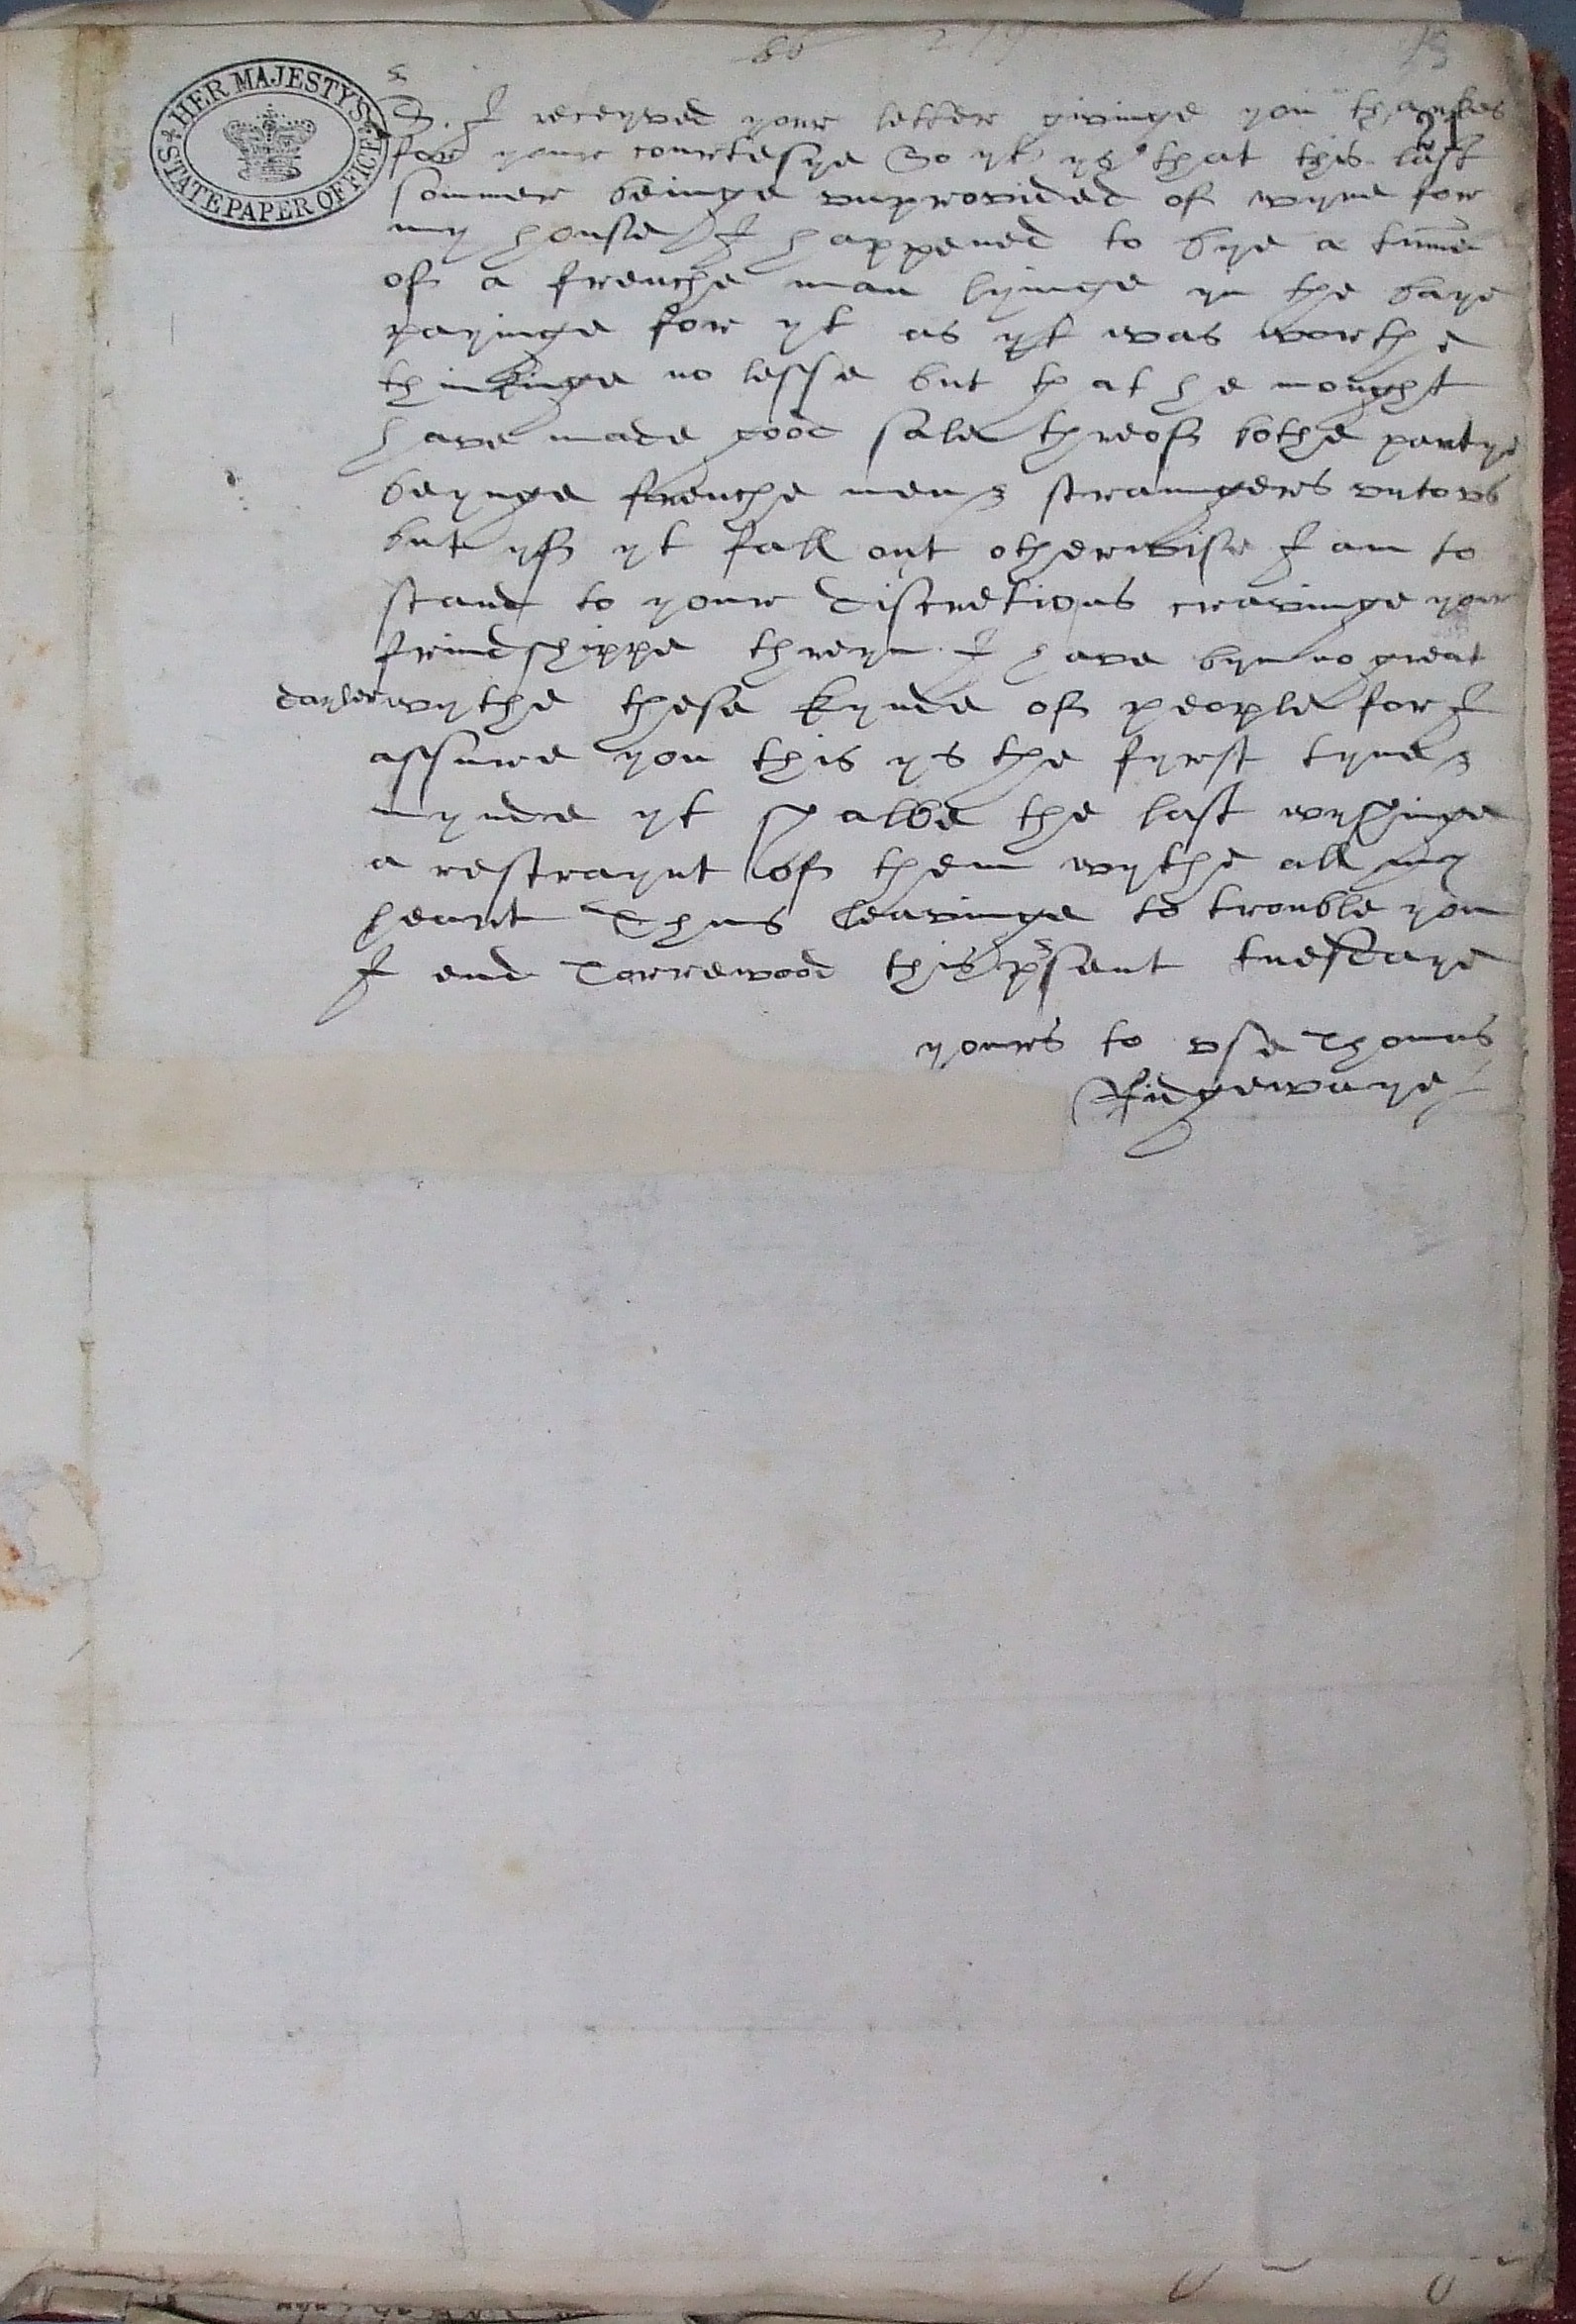 HER MAJESTY'S
STATE PAPER OFFICE
21
S. I receyved your letter givinge you thankes
for youre courtesye So yt ys that this last
sommer beinge unprovided of wyne for
my house I happened to bye a tunne
of a frenche man lyinge yn the baye
payinge for yt as yt was worthe
thinkinge no lesse but that he mought
have made good sale threof bothe partys
beynge frenche men & straungers untous
but yf yt fall out otherwise I am to
stand to youre discretions cravinge your
frindshippe threyn. I have byn no great
dayler wythe these kynde of people for I
assure you this ys the fyrst tyme &
mynde yt shalbe the last wyshinge
a restraynt of them wythe all my
heart Thus leavinge to trouble you
I end Torrewood this psent tuesdaye
youres to use Thomas
Ridgewaye